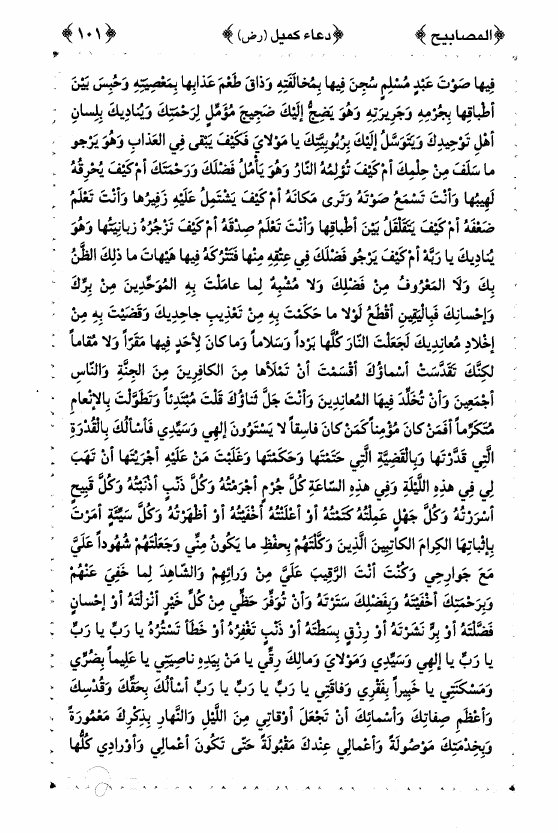 ﴿المصابيح﴾ ﴿دعاء كميل (رض)﴾ ﴿١٠١﴾
فِيها صَوْتَ عَبْدٍ مُسْلِمٍ سُجِنَ فِيها بِمُخالَفَتِهِ وَذاقَ طَعْمَ عَذابِها بِمَعْصِيَتِهِ وَحُبِسَ بَيْنَ
أطْباقِها بِجُرْمِهِ وَجَرِيرَتِهِ وَهُوَ يَضِجُّ إلَيْكَ ضَجِيجَ مُؤَمِّلٍ لِرَحْمَتِكَ وَيُنادِيكَ بِلِسانِ
أهْلِ تَوْحِيدِكَ وَيَتَوَسَّلُ إلَيْكَ بِرُبُوبِيَّتِكَ يا مَوْلايَ فَكَيْفَ يَبْقى فِي العَذابِ وَهُوَ يَرْجُو
ما سَلَفَ مِنْ حِلْمِكَ أمْ كَيْفَ تُؤلِمُهُ النّارُ وَهُوَ يَأْمُلُ فَضْلَكَ وَرَحْمَتَكَ أمْ كَيْفَ يُحْرِقُهُ
لَهِيبُها وَأنْتَ تَسْمَعُ صَوْتَهُ وَتَرى مَكانَهُ أمْ كَيْفَ يَشْتَمِلُ عَلَيْهِ زَفِيرُها وَأنْتَ تَعْلَمُ
ضَعْفَهُ أمْ كَيْفَ يَتَقَلْقَلُ بَيْنَ أطْباقِها وَأنْتَ تَعْلَمُ صِدْقَهُ أمْ كَيْفَ تَزْجُرُهُ زبانِيَتُها وَهُوَ
يُنادِيكَ يا رَبَّهُ أمْ كَيْفَ يَرْجُو فَضْلَكَ فِي عِتْقِهِ مِنْها فَتَتْرُكَهُ فِيها هَيْهاتَ ما ذلِكَ الظَّنُّ
بِكَ وَلا المَعْرُوفُ مِنْ فَضْلِكَ وَلا مُشْبِهٌ لِما عامَلْتَ بِهِ المُوَحِّدِينَ مِنْ بِرِّكَ
وَإحْسانِكَ فَبِالْيَقِينِ أقْطَعُ لَوْلا ما حَكَمْتَ بِهِ مِنْ تَعْذِيبِ جاحِدِيكَ وَقَضَيْتَ بِهِ مِنْ
إخْلادِ مُعانِدِيكَ لَجَعَلْتَ النّارَ كُلَّها بَرْداً وَسَلاماً وَما كانَ لأحَدٍ فِيها مَقَرّاً وَلا مُقاماً
لكِنَّكَ تَقَدَّسَتْ أسْماؤُكَ أقْسَمْتَ أنْ تَمْلأها مِنَ الكافِرِينَ مِنَ الجِنَّةِ وَالنّاسِ
أجْمَعِينَ وَأنْ تُخَلِّدَ فِيهَا المُعانِدِينَ وَأنْتَ جَلَّ ثَناؤُكَ قُلْتَ مُبْتَدِئاً وَتَطَوَّلْتَ بِالإنْعامِ
مُتَكَرِّماً أفَمَنْ كانَ مُؤْمِناً كَمَنْ كانَ فاسِقاً لا يَسْتَوُونَ إلهِي وَسَيِّدِي فَأسْألُكَ بِالْقُدْرَةِ
الَّتِي قَدَّرْتَها وَبِالْقَضِيَّةِ الَّتِي حَتَمْتَها وَحَكَمْتَها وَغَلَبْتَ مَنْ عَلَيْهِ أجْرَيْتَها أنْ تَهَبَ
لِي فِي هذِهِ اللَّيْلَةِ وَفِي هذِهِ السّاعَةِ كُلَّ جُرْمٍ أجْرَمْتُهُ وَكُلَّ ذَنْبٍ أذْنَبْتُهُ وَكُلَّ قَبِيحٍ
أسْرَرْتُهُ وَكُلَّ جَهْلٍ عَمِلْتُهُ كَتَمْتُهُ أوْ أعْلَنْتُهُ أخْفَيْتُهُ أوْ أظْهَرْتُهُ وَكُلَّ سَيِّئَةٍ أمَرْتَ
بِإثْباتِهَا الكِرامَ الكاتِبِينَ الَّذِينَ وَكَّلْتَهُمْ بِحِفْظِ ما يَكُونُ مِنِّي وَجَعَلْتَهُمْ شُهُوداً عَلَيَّ
مَعَ جَوارِحِي وَكُنْتَ أنْتَ الرَّقِيبَ عَلَيَّ مِنْ وَرائِهِمْ وَالشّاهِدَ لِما خَفِيَ عَنْهُمْ
وَبِرَحْمَتِكَ أخْفَيْتَهُ وَبِفَضْلِكَ سَتَرْتَهُ وَأنْ تُوَفِّرَ حَظِّي مِنْ كُلِّ خَيْرٍ أنْزَلْتَهُ أوْ إحْسانٍ
فَضَّلْتَهُ أوْ بِرٍّ نَشَرْتَهُ أوْ رِزْقٍ بَسَطْتَهُ أوْ ذَنْبٍ تَغْفِرُهُ أوْ خَطَأٍ تَسْتُرُهُ يا رَبِّ يا رَبِّ
يا رَبِّ يا إلهِي وَسَيِّدِي وَمَوْلايَ وَمالِكَ رِقِّي يا مَنْ بِيَدِهِ ناصِيَتِي يا عَلِيماً بِضُرِّي
وَمَسْكَنَتِي يا خَبِيراً بِفَقْرِي وَفاقَتِي يا رَبِّ يا رَبِّ يا رَبِّ أسْألُكَ بِحَقِّكَ وَقُدْسِكَ
وَأعْظَمِ صِفاتِكَ وَأسْمائِكَ أنْ تَجْعَلَ أوْقاتِي مِنَ اللَّيْلِ وَالنَّهارِ بِذِكْرِكَ مَعْمُورَةً
وَبِخِدْمَتِكَ مَوْصُولَةً وَأعْمالِي عِنْدَكَ مَقْبُولَةً حَتّى تَكُونَ أعْمالِي وَأوْرادِي كُلُّها